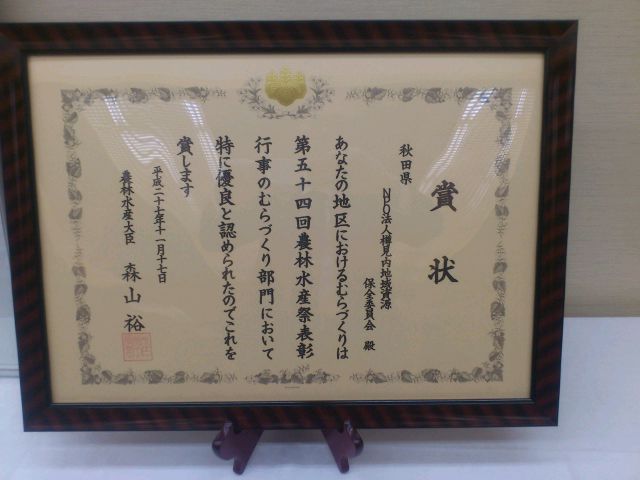 賞状
秋田県
NPO法人樺見内地域資源
保全委員会 殿
あなたの地区におけるむらづくりは
第五十四回農林水産祭表彰
行事のむらづくり部門において
特に優良と認められたのでこれを
賞します
平成二十七年十一月十七日
農林水産大臣 森山裕